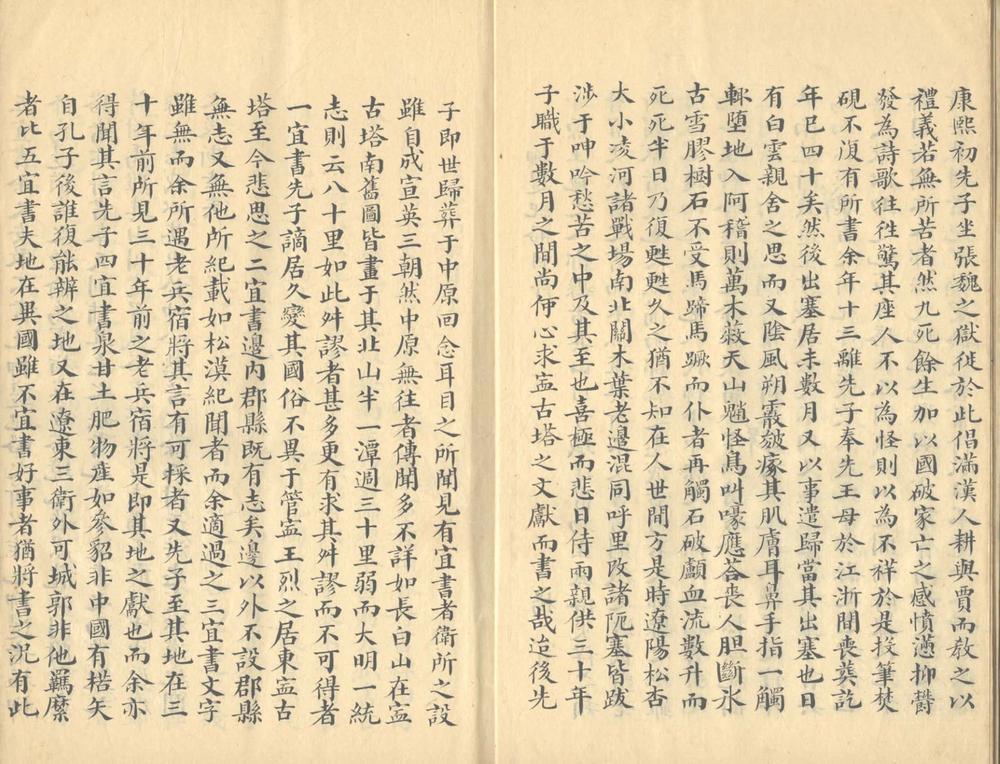 康熙初先子坐張魏之獄徙於此倡滿漢人耕與賈而教之以
禮義若無所苦者然九死餘生加以國破家亡之感憤懣抑鬱
發為詩歌往往驚其座人不以為怪則以為不祥於是投筆焚
硯不復有所書余年十三離先子奉先王母於江浙間喪葬訖
年已四十矣然後出塞居未數月又以事遣歸當其出塞也日
有白雲親舍之思而又陰風朔霰皴瘃其肌膚耳鼻手指一觸
輒墮地入阿稽則萬木蔽天山魈怪鳥叫嚎應荅喪人胆斷氷
古雪膠樹石不受馬蹄馬蹶而仆者再觸石破顱血流數升而
死死半日乃復甦甦久之猶不知在人世間方是時遼陽松杏
大小凌河諸戰場南北關木葉老邊混同呼里攺諸阨塞皆跋
涉于呻吟愁苦之中及其至也喜極而悲日侍兩親供三十年
子職于數月之間尚伊心求寍古塔之文獻而書之哉迨後先
子即世歸葬于中原回念耳目之所聞見有宜書者衛所之設
雖自成宣英三朝然中原無往者傳聞多不詳如長白山在寍
古塔南舊圖皆畫于其北山半一潭週三十里弱而大明一統
志則云八十里如此舛謬者甚多更有求其舛謬而不可得者
一宜書先子謫居久變其國俗不異于管寍王烈之居東寍古
塔至今悲思之二宜書邊內郡縣既有志矣邊以外不設郡縣
無志又無他所紀載如松漠紀聞者而余適過之三宜書文字
雖無而余所遇老兵宿將其言有可採者又先子至其地在三
十年前所見三十年前之老兵宿將是即其地之獻也而余亦
得聞其言先子四宜書泉甘土肥物產如參貂非中國有楛矢
自孔子後誰復能辨之地又在遼東三衛外可城郭非他羈縻
者比五宜書夫地在異國雖不宜書好事者猶將書之況有此